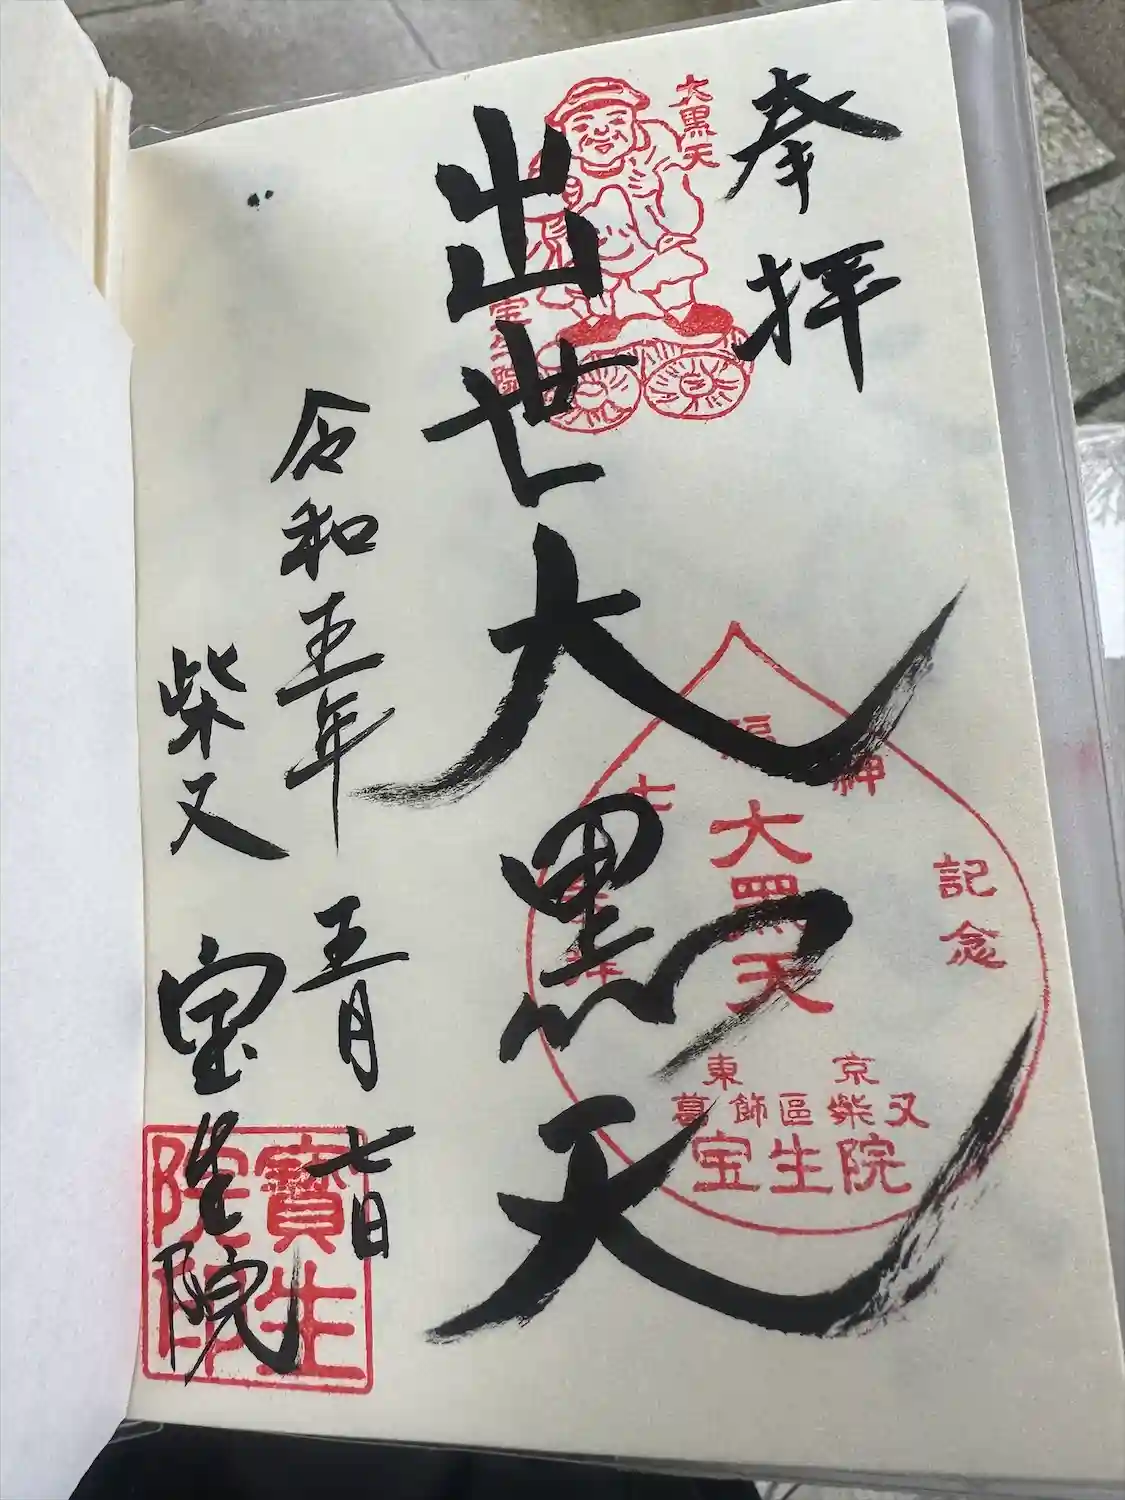 奉拝
大黒天
宝生院
出世大黒天
令和五年 五月 七日
柴又 宝生院
福神
記念
七
拝
大黒天
東京
葛飾區柴又
宝生院
寶生
院印